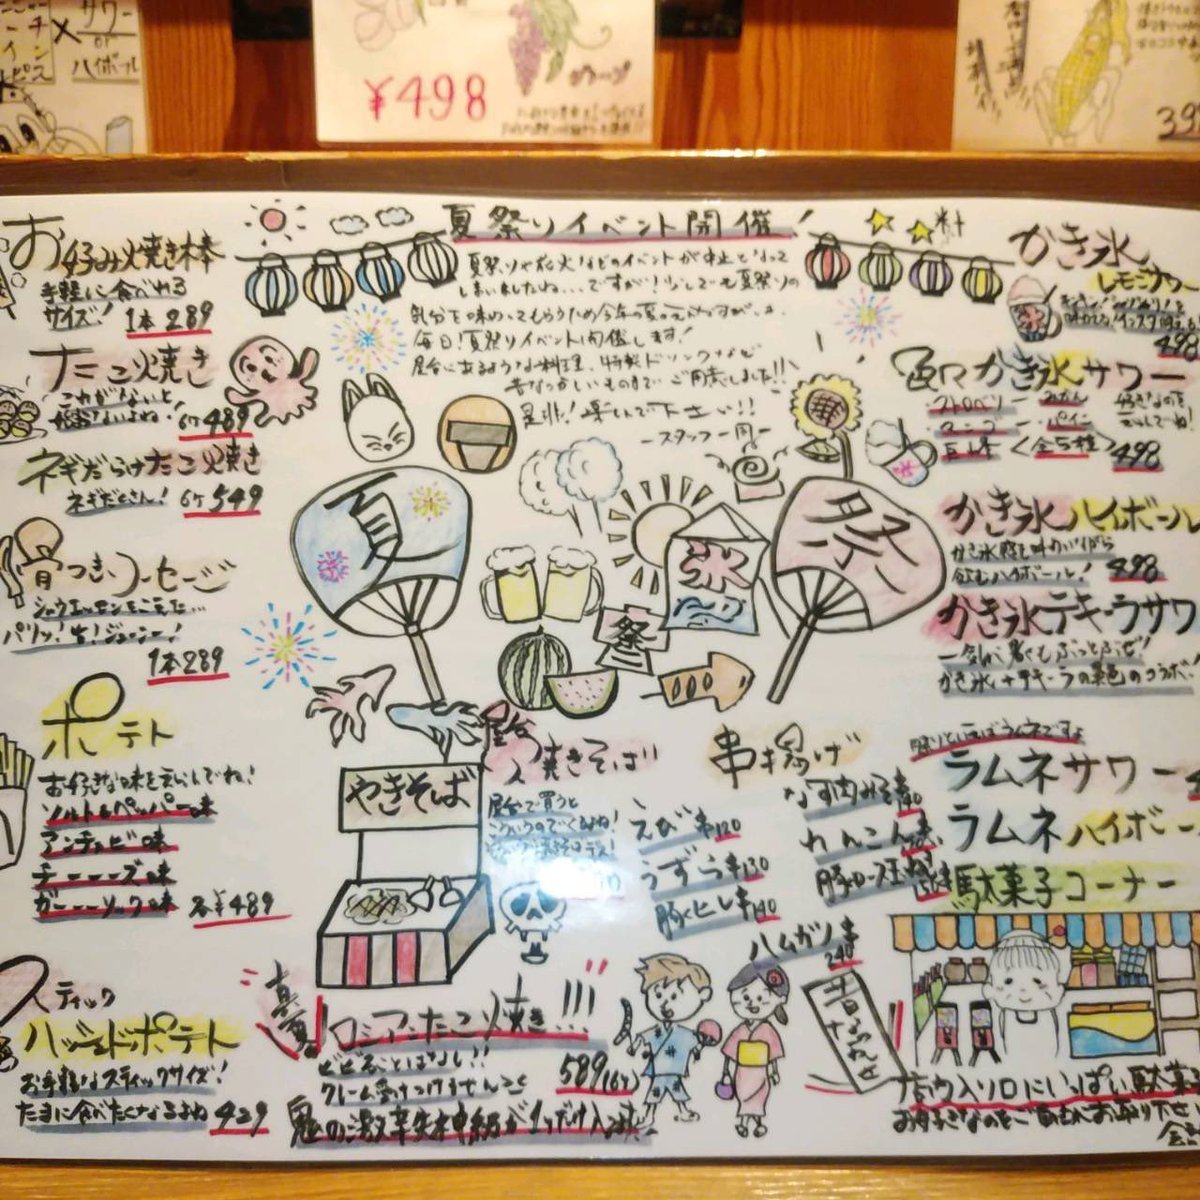 サワー
or
ハイボール
×
¥498
グレープ
39
夏祭りイベント開催！
夏祭りや花火などのイベントが中止となって
しまいましたね…ですが！少しでも夏祭りの
気分を味わってもらうため今年の夏の
毎日！夏祭りイベント開催します！
屋台にあるような料理、特製ドリンクなど
昔なつかしいものまでご用意しました!!
是非！楽しんで下さい!!
ースタッフ一同ー
お好み焼き棒
手軽に食べれる
サイズ！ 1本289
たこ焼き
これがないと
始まらないよね！ 6ケ489
ネギだらけたこ焼き
ネギだくさん！ 6ケ549
骨つきソーセージ
シャウエッセンをこえた…
パリッ！ジューシー！
1本289
ポテト
お好きな味をえらんでね！
ソルト&ペッパー味
アンチョビ味
チーーーズ味
ガーーーリック味 各¥489
スティック
ハッシュドポテト
お手軽なスティックサイズ！
たまに食べたくなるよね 429
夏
祭
氷
祭
華
やきそば
屋台の焼きそば
屋台で買うと
串揚げ
えび串120
うずら串130
豚ヒレ串140
れんこん串
ハムカツ串
240
真夏のロシアンたこ焼き!!!
ビビることはなし!!
クレーム受けつけませんこと 589(6ケ)
鬼の激辛失神級が1つだけ入ってます
かき氷
レモンサワー
498
色々かき氷サワー
ストロベリー みかん
マンゴー パイン
巨峰 <全5種> 498
かき氷ハイボール
かき氷感を味わいながら
飲むハイボール！ 498
かき氷テキーラサワ
一気に暑くもぶっとぶぜ！
かき氷＋テキーラの異色のコラボ
祭りといえばラムネですよ
ラムネサワー
ラムネハイボー
駄菓子コーナー
店内入り口にいっぱい駄菓
お好きなのをご自由にお取り下さ